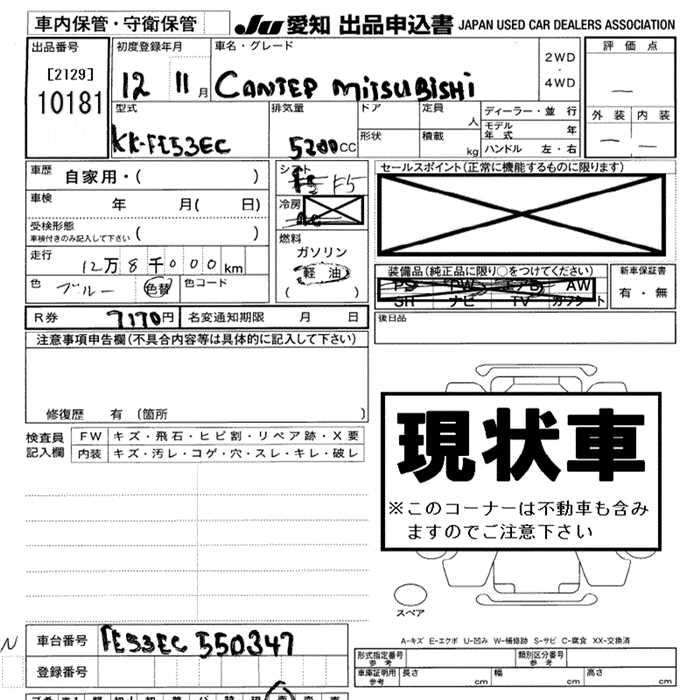 車内保管・守衛保管
JU 愛知 出品申込書 JAPAN USED CAR DEALERS ASSOCIATION
出品番号
[2129]
10181
初度登録年月
12 11月
車名・グレード
CANTEP MITSUBISHI
2WD
・
4WD
評価点
—
外装 内装
— —
型式
KK-FE53EC
排気量
5200CC
ドア
形状
定員
人
積載
kg
ディーラー・並行
モデル年式
年
ハンドル 左・右
車歴
自家用・( )
車検
年 月( 日)
受検形態
車検付きのみ記入して下さい ( )
走行
12万8千000km
色
ブルー
色替
色コード
シフト
F5
冷房
燃料
ガソリン
軽油
( )
セールスポイント(正常に機能するものに限ります)
装備品(純正品に限り○をつけてください)
PS PW エアB AW
SR ナビ TV カワシート
新車保証書
有・無
R券 7170円
名変通知期限 月 日
後日品
注意事項申告欄(不具合内容等は具体的に記入して下さい)
修復歴 有 〔箇所 〕
検査員
記入欄
FW キズ・飛石・ヒビ割・リペア跡・X要
内装 キズ・汚レ・コゲ・穴・スレ・キレ・破レ
現状車
※このコーナーは不動車も含み
ますのでご注意下さい
スペア
A-キズ E-エクボ U-凹み W-補修跡 S-サビ C-腐食 XX-交換済
N
車台番号
FE53EC 550347
登録番号
型式指定番号
参考
類別区分番号
参考
車庫証明用
参考
長さ cm
幅 cm
高さ cm